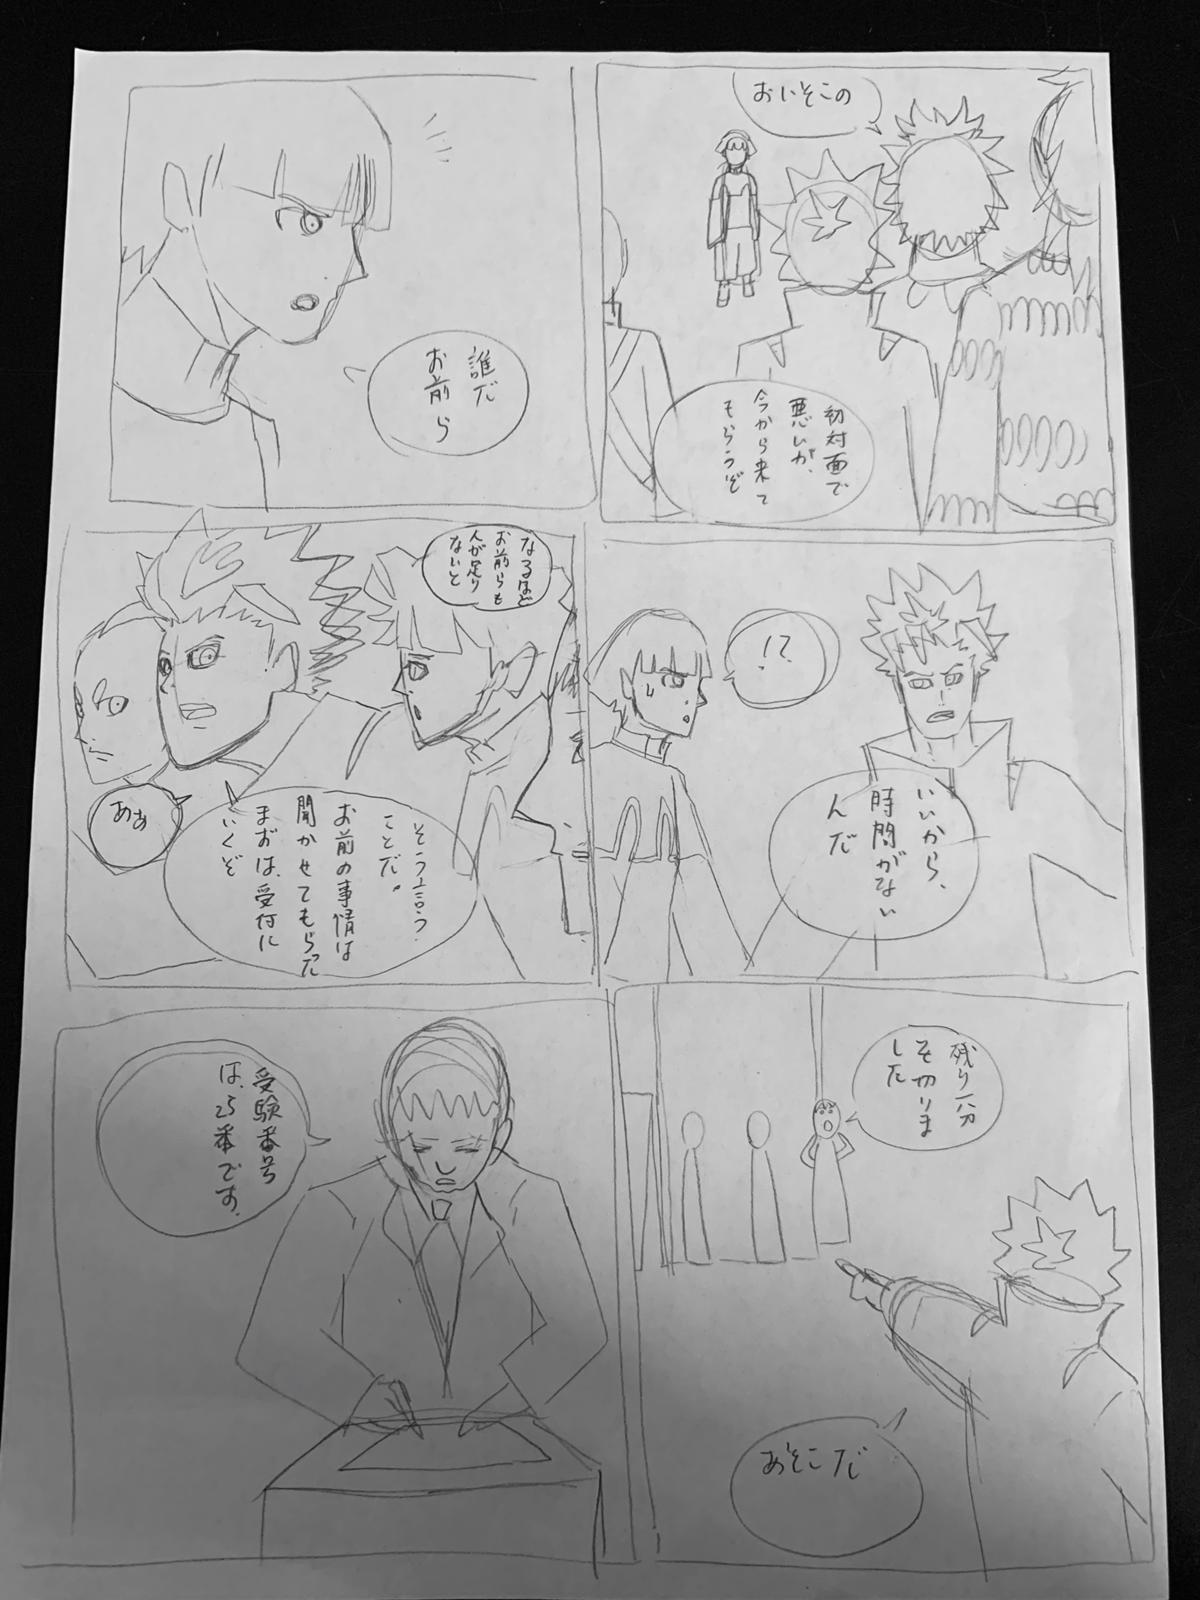 おいそこの
初対面で
悪いが、
今から来て
もらうぞ
誰だ
お前ら
いいから、
時間がない
んだ
!?
なるほど
お前らも
人が足り
ないと
そう言う
ことだ。
お前の事情は
聞かせてもらった
まずは、受付に
いくぞ
ああ
残り六分
を切りま
した
あそこだ
受験番号
は、25番です。